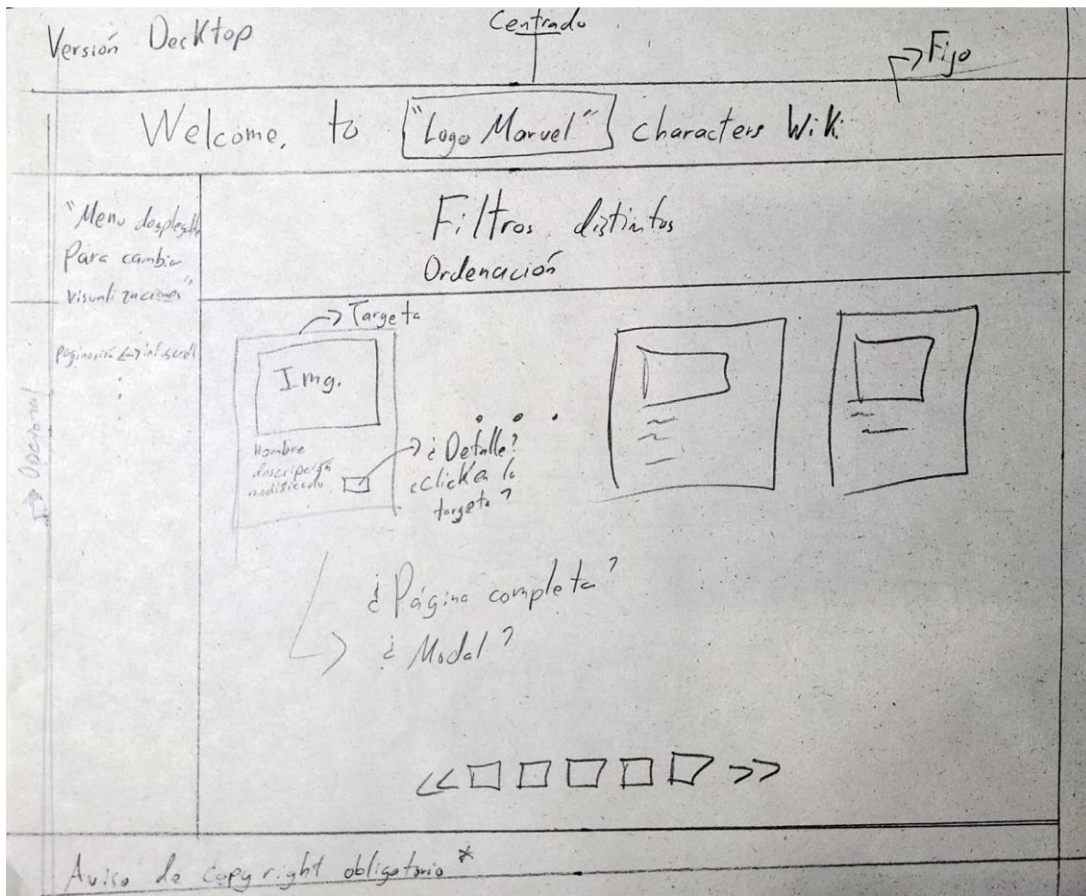 Versión Decktop
Centrado
Fijo
Welcome, to "Logo Marvel" characters Wiki
"Menu desplegable
Para cambiar
visualizaciones"
paginación <-> inf. scroll
Opcional
Filtros distintos
Ordenación
Targeta
Img.
Nombre
descripción
modificado
¿Detalle?
¿Click en la
targeta?
¿Página completa?
¿Modal?
<< >>
Aviso de copyright obligatorio *